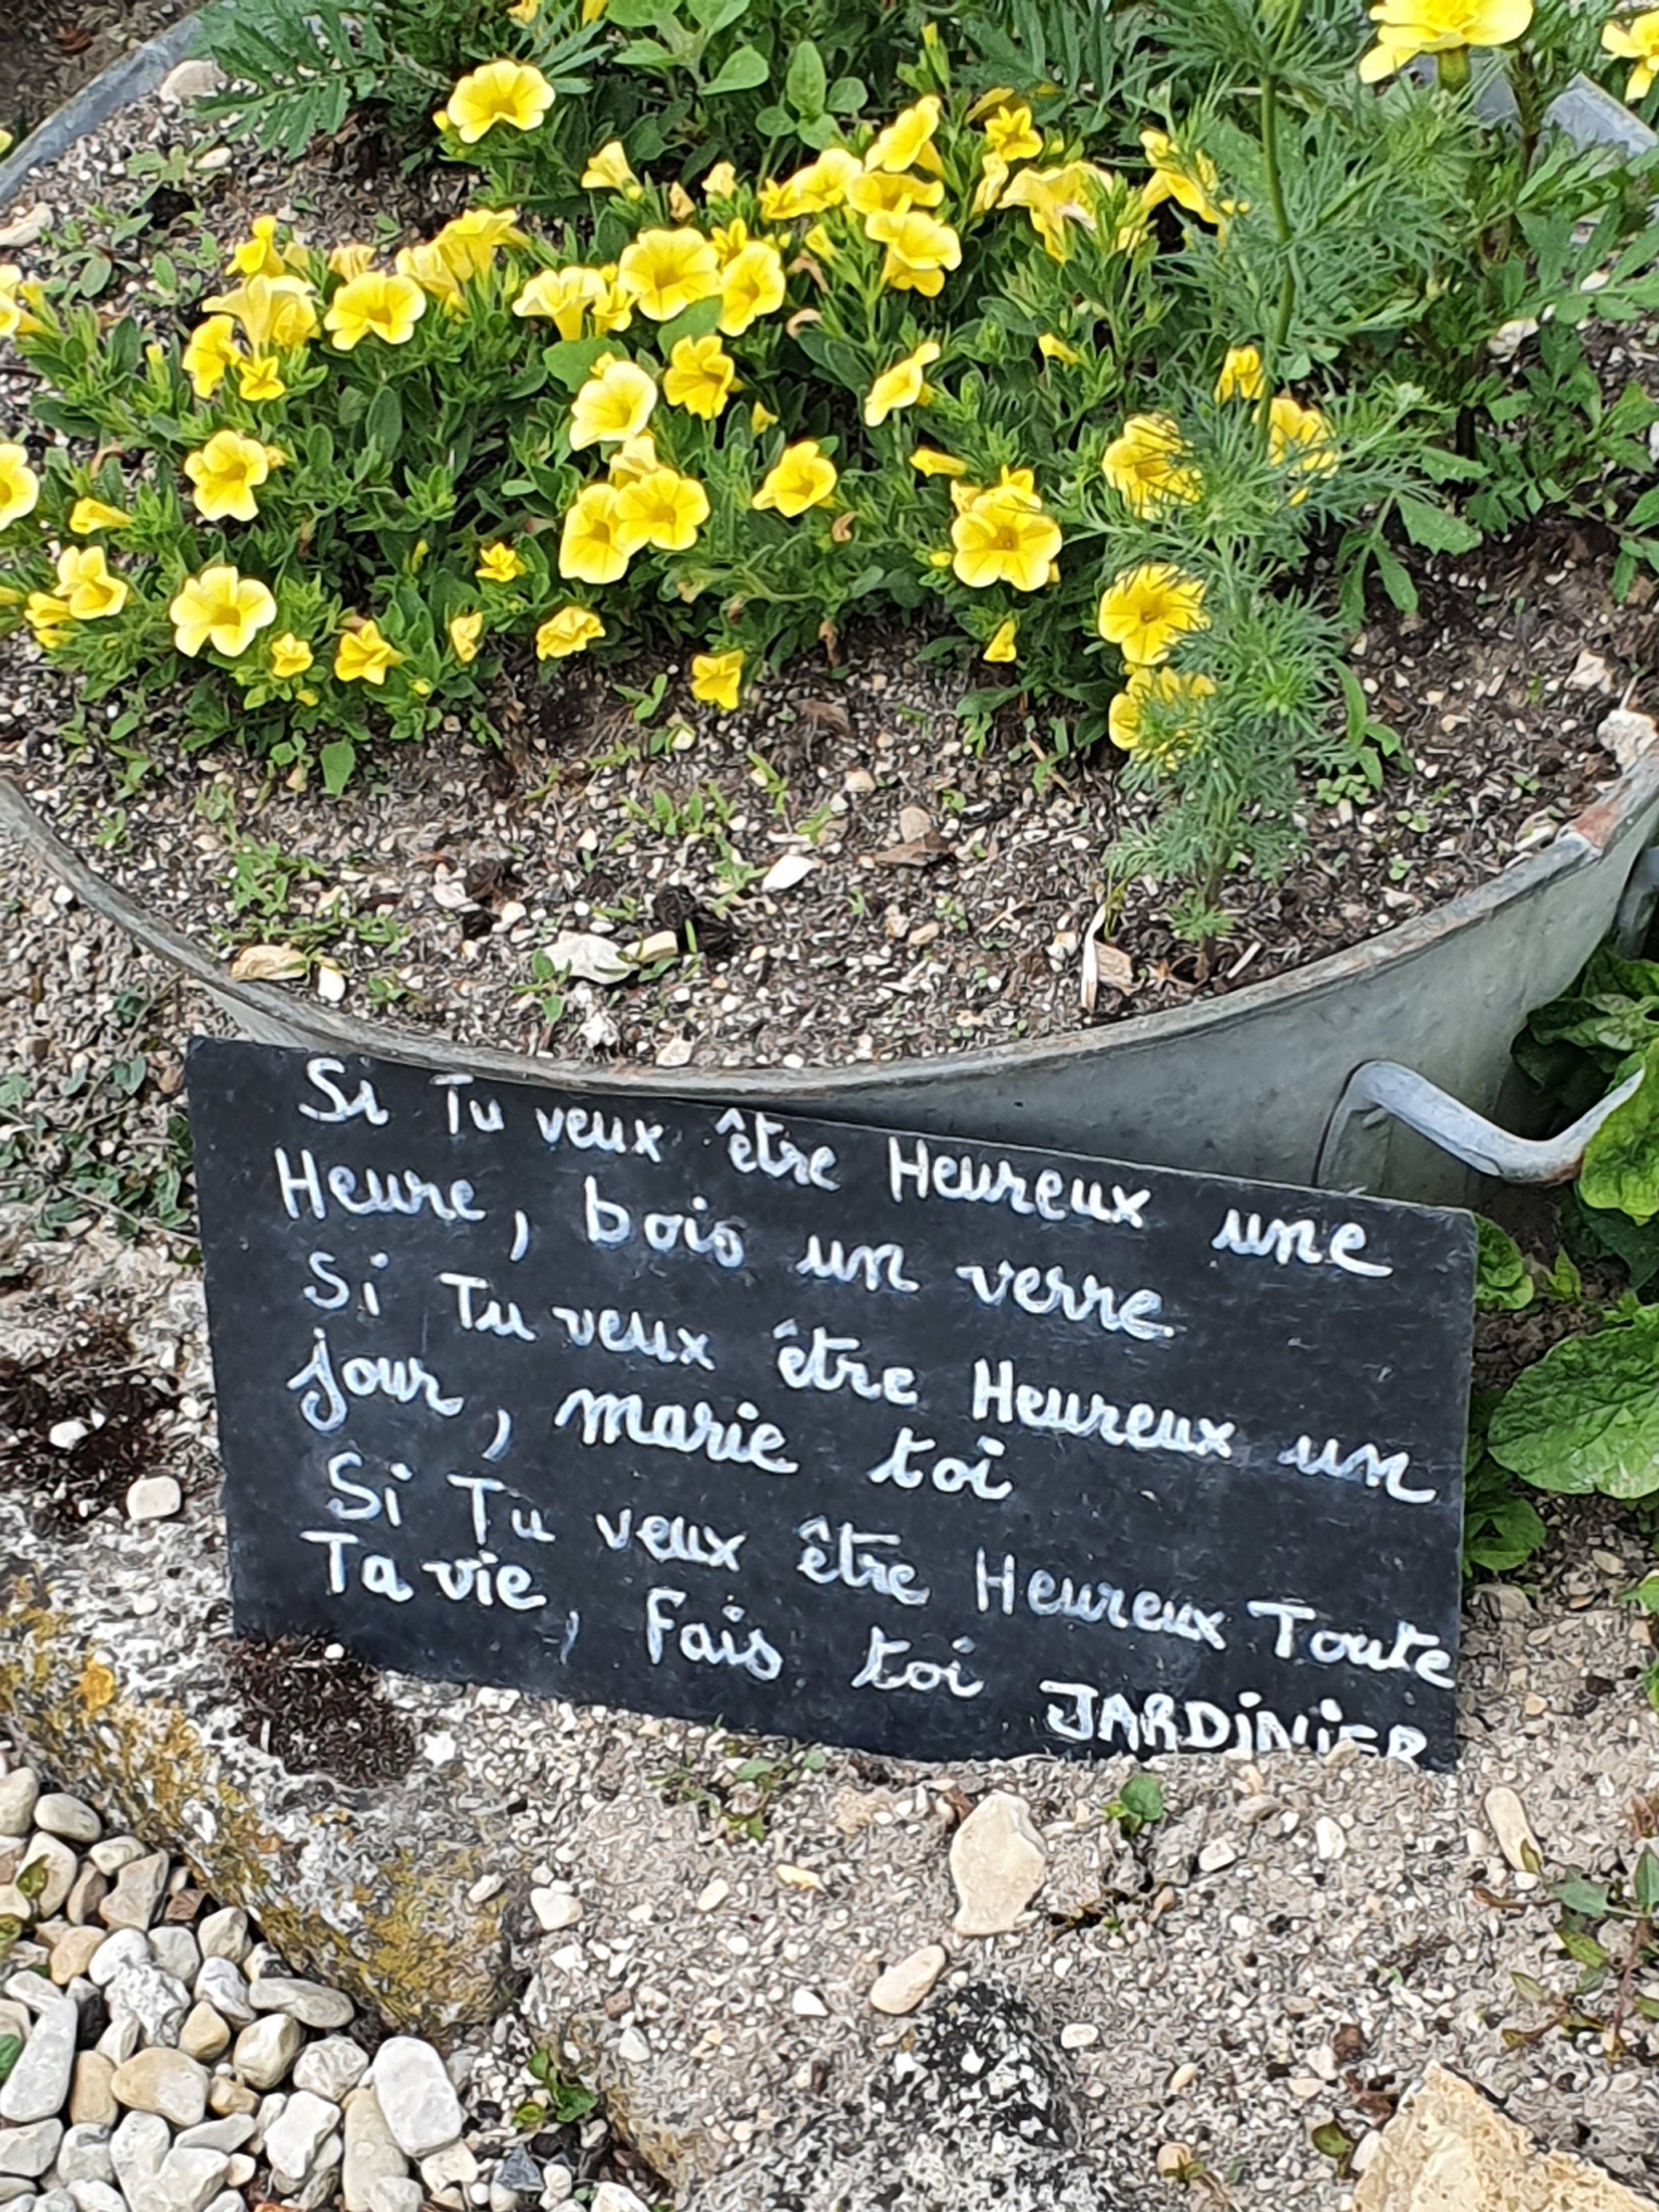 Si Tu veux être Heureux une
Heure, bois un verre
Si Tu veux être Heureux un
jour, marie toi
Si Tu veux être Heureux Toute
Ta vie, Fais toi JARDiNiER